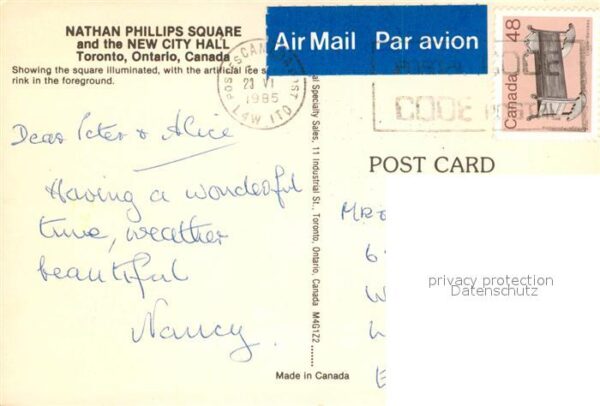 NATHAN PHILLIPS SQUARE
and the NEW CITY HALL
Toronto, Ontario, Canada
Showing the square illuminated, with the artificial ice
rink in the foreground.
Air Mail Par avion
POSTES CANADA POST
23 VI
1985
L4W 1T0
CODE
CODE POSTAL
Canada 48
Dear Peter & Alice
Having a wonderful
time, weather
beautiful
Nancy.
Specialty Sales, 11 Industrial St., Toronto, Ontario, Canada M4G1Z2
POST CARD
MR
6
W
E
privacy protection
Datenschutz
Made in Canada